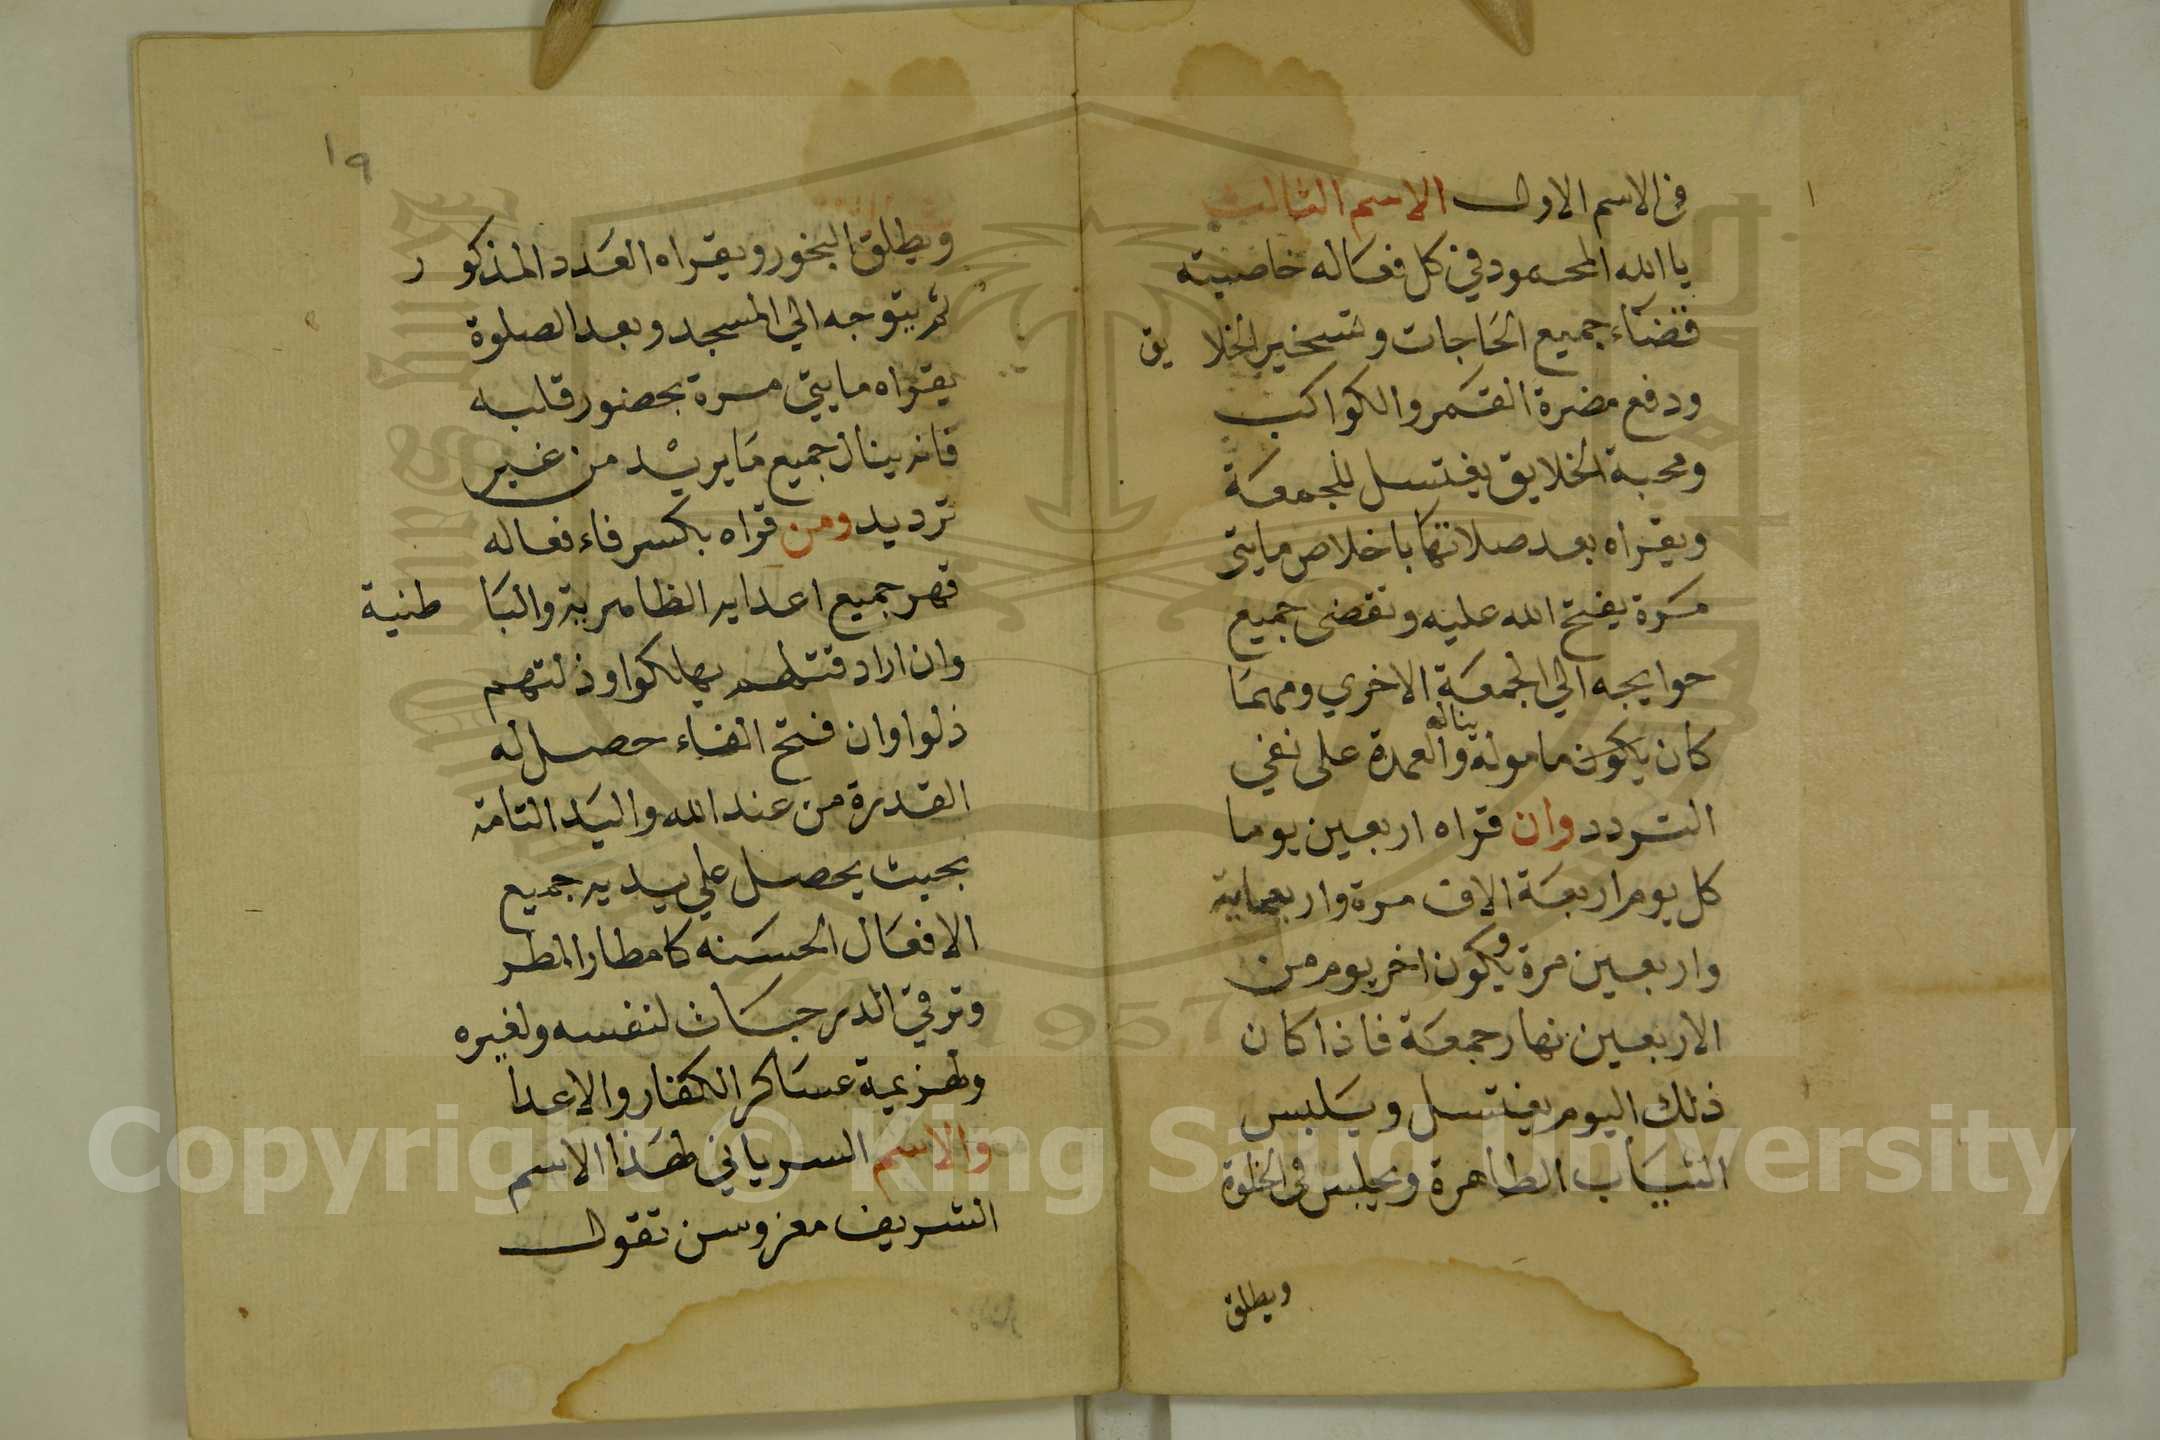 في الاسم الاول الاسم الثالث
يا الله المحمود في كل فعاله خاصيته
قضآء جميع الحاجات وتسخير الخلا يق
ودفع مضرة القمر والكواكب
ومحبة الخلايق يغتسل للجمعة
ويقراه بعد صلاتها باخلاص مايتي
مرة يفتح الله عليه وتقضى جميع
حوايجه الي الجمعة الاخري ومهما
كان يكون ماموله يناله والعمدة على نفي
التردد وان قراه اربعين يوما
كل يوم اربعة الاف مرة واربعماية
واربعين مرة ويكون اخر يوم من
الاربعين نهار جمعة فاذا كان
ذلك اليوم يغتسل ويلبس
الثياب الطاهرة ويجلس في الخلوة
ويطلق
١٩
ويطلق البخور ويقراه العدد المذكو ر
ثم يتوجه الي المسجد وبعد الصلوة
يقراه مايتي مرة بحضور قلبه
فانه ينال جميع ما يريد من غير
ترديد ومن قراه بكسر فاء فعاله
قهر جميع اعدايه الظاهرية والبا طنية
وان اراد قتلهم يهلكوا وذلتهم
ذلوا وان فتح الفاء حصل له
القدرة من عند الله واليد التامة
بحيث يحصل علي يديه جميع
الافعال الحسنه كامطار المطر
وترقي الدرجات لنفسه ولغيره
وهزيمة عساكر الكفار والاعدا
والاسم السرياني لهذا الاسم
الشريف مغزوسن تقول
Copyright © King Saud University
King Saud University
1957